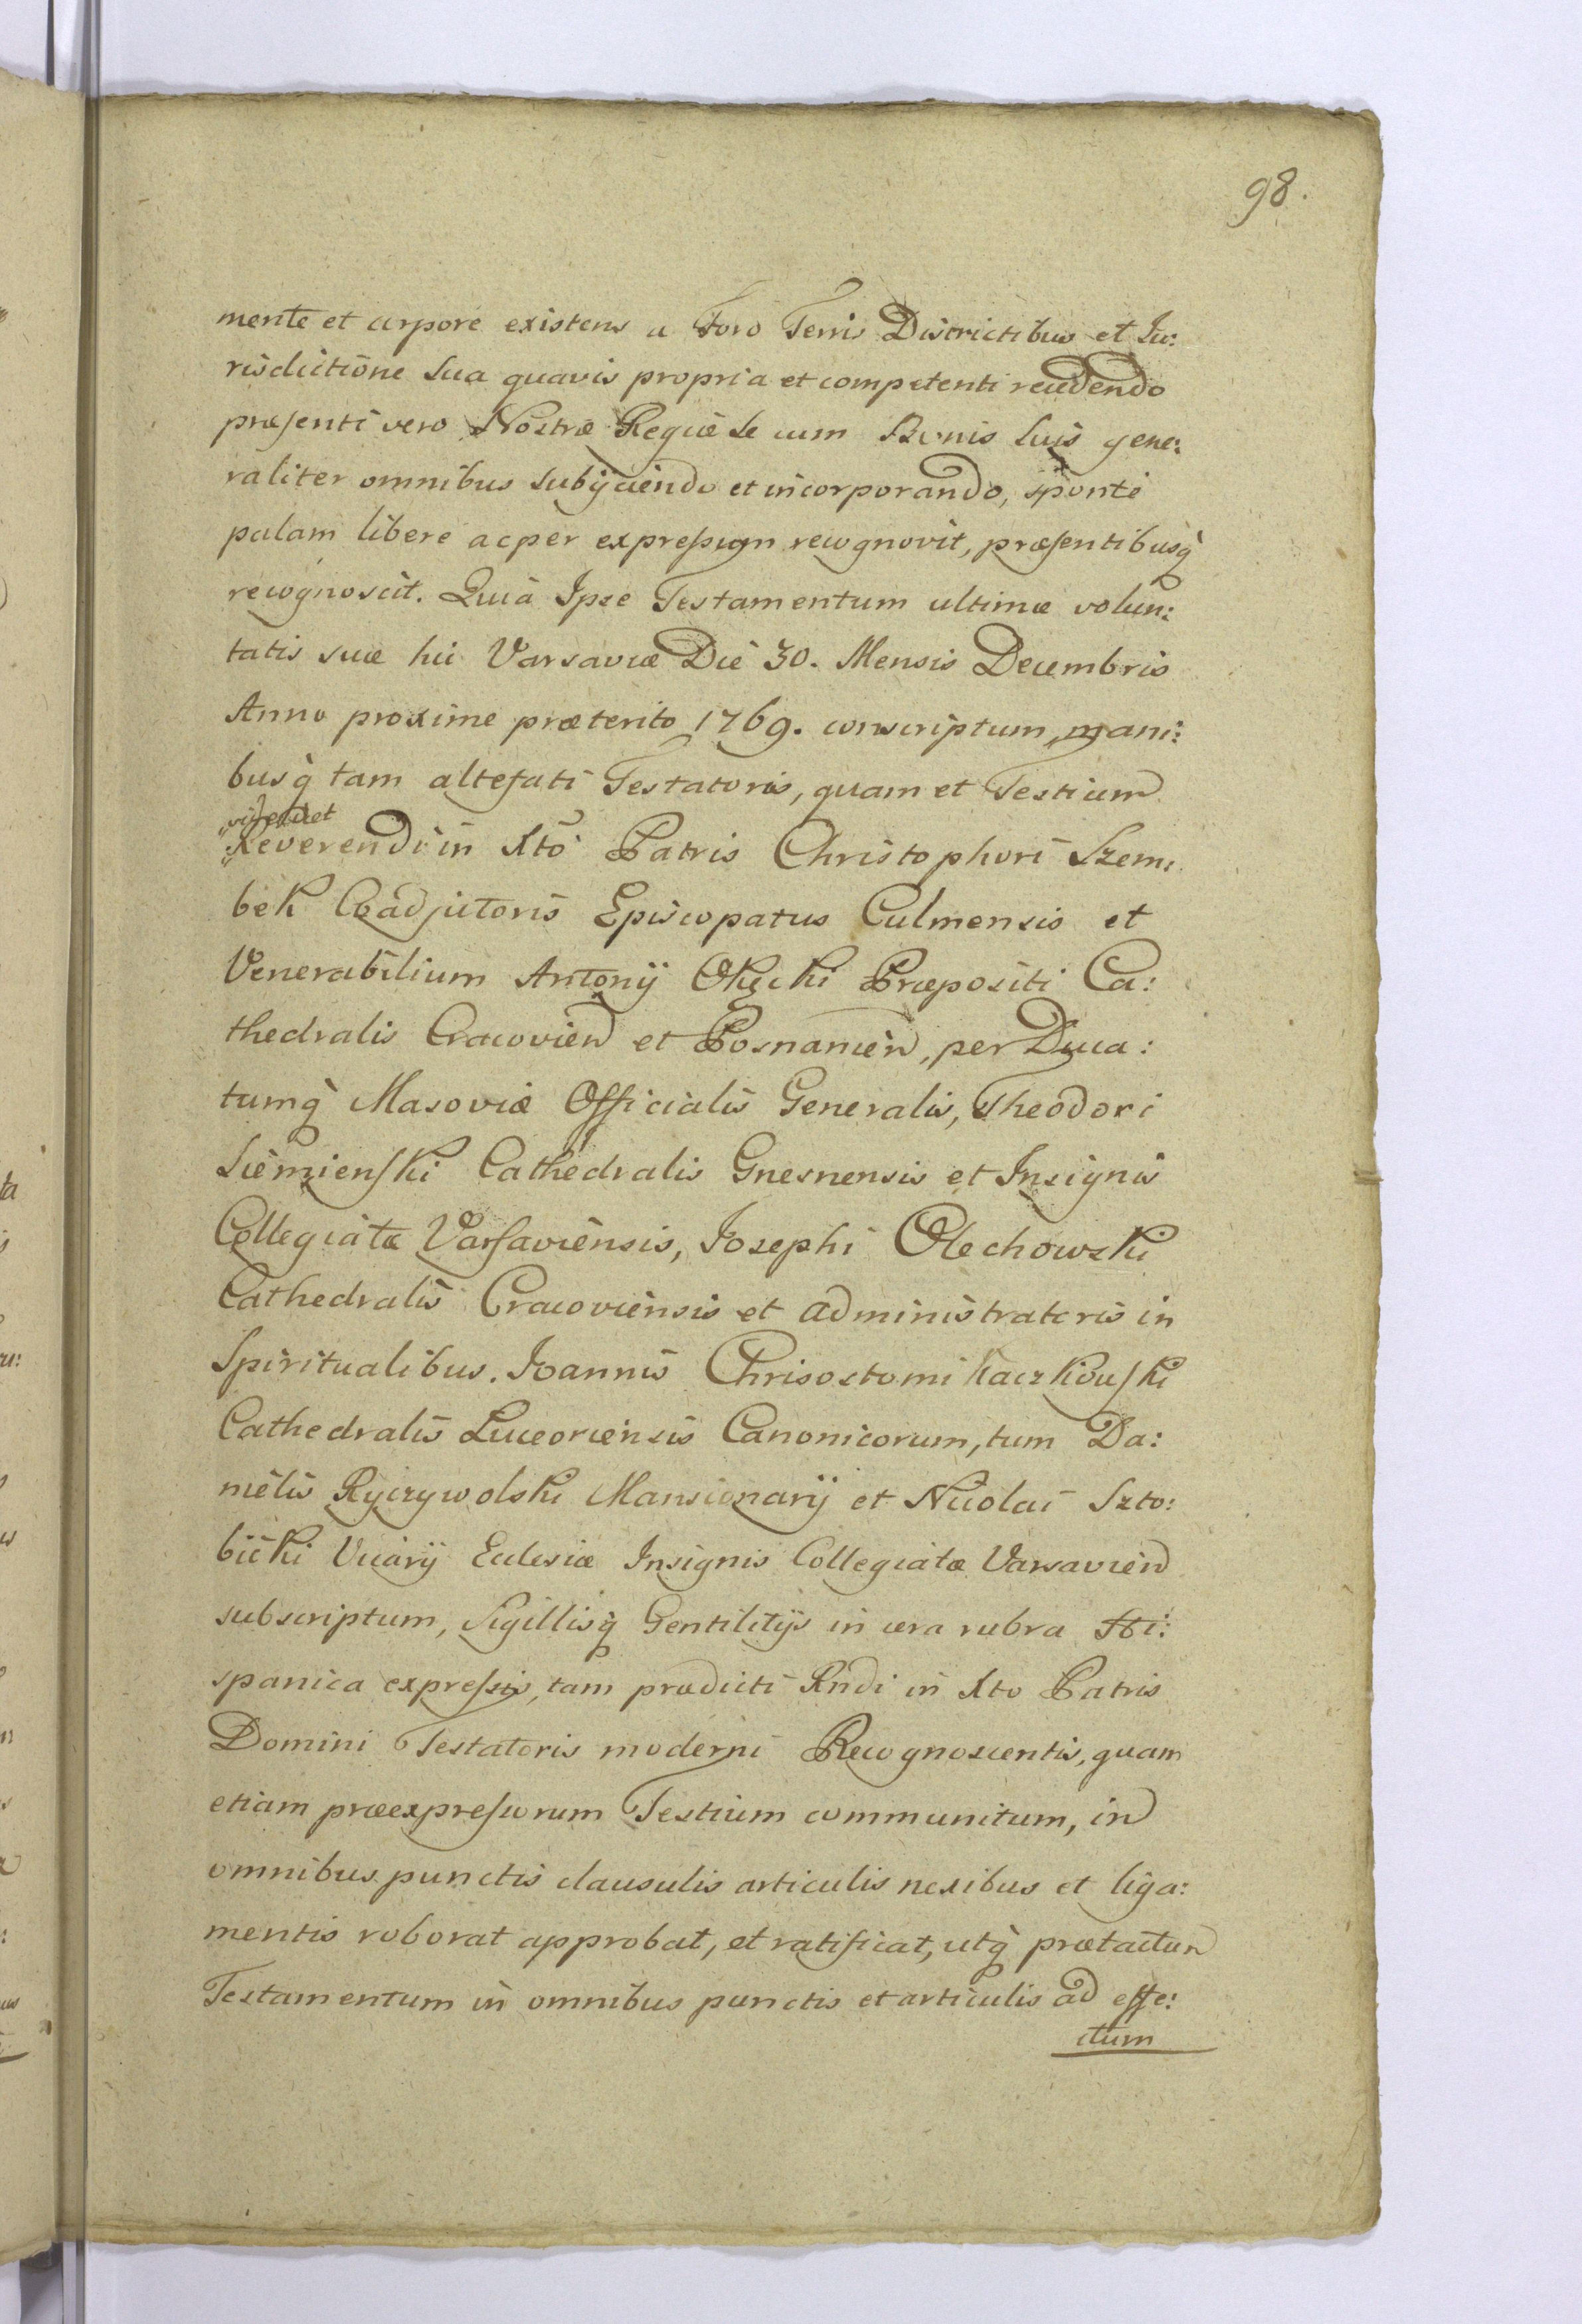 98.
mente et corpore existens a Foro Terris Districtibus et Ju:
risdictione Sua quavis propria et competenti recedendo
præsenti vero Nostræ Regiæ Se cum Bonis Suis gene:
raliter omnibus Subijciendo et incorporando, sponte
palam libere ac per expressum recognovit, præsentibusq̀
recognoscit. Quia Ipse Testamentum ultimæ volun:
tatis suæ hic Varsaviæ Die 30. Mensis Decembris
Anno proxime præterito 1769. conscriptum, mani:
busq̀ tam altefati Testatoris, quam et Testium
Reverendi in Xto Patris Christophori Szem:
bek Coadjutoris Episcopatus Culmensis et
Venerabilium Antonij Okęcki Præpositi Ca:
thedralis Cracovien et Posnanien, per Duca:
tumq̀ Masoviæ Officialis Generalis, Theodori
Siemienski Cathedralis Gnesnensis et Insignis
Collegiatæ Varsaviensis, Josephi Olechowski
Cathedralis Cracoviensis et Administratoris in
Spiritualibus. Joannis Chrisostomi Kaczkowski
Cathedralis Luceoriensis Canonicorum, tum Da:
nielis Ryczywolski Mansionarij et Nicolai Szto:
bicki Vicarij Eclesiæ Insignis Collegiatæ Varsavien
subscriptum, Sigillisq̀ Gentilitijs in cera rubra Hi:
spanica expressis, tam prædicti Rndi in Xto Patris
Domini Testatoris moderni Recognoscentis, quam
etiam præexpressorum Testium communitum, in
omnibus punctis clausulis articulis nexibus et liga:
mentis roborat approbat, et ratificat, utq̀ prætactum
Testamentum in omnibus punctis et articulis ad effe:
ctum